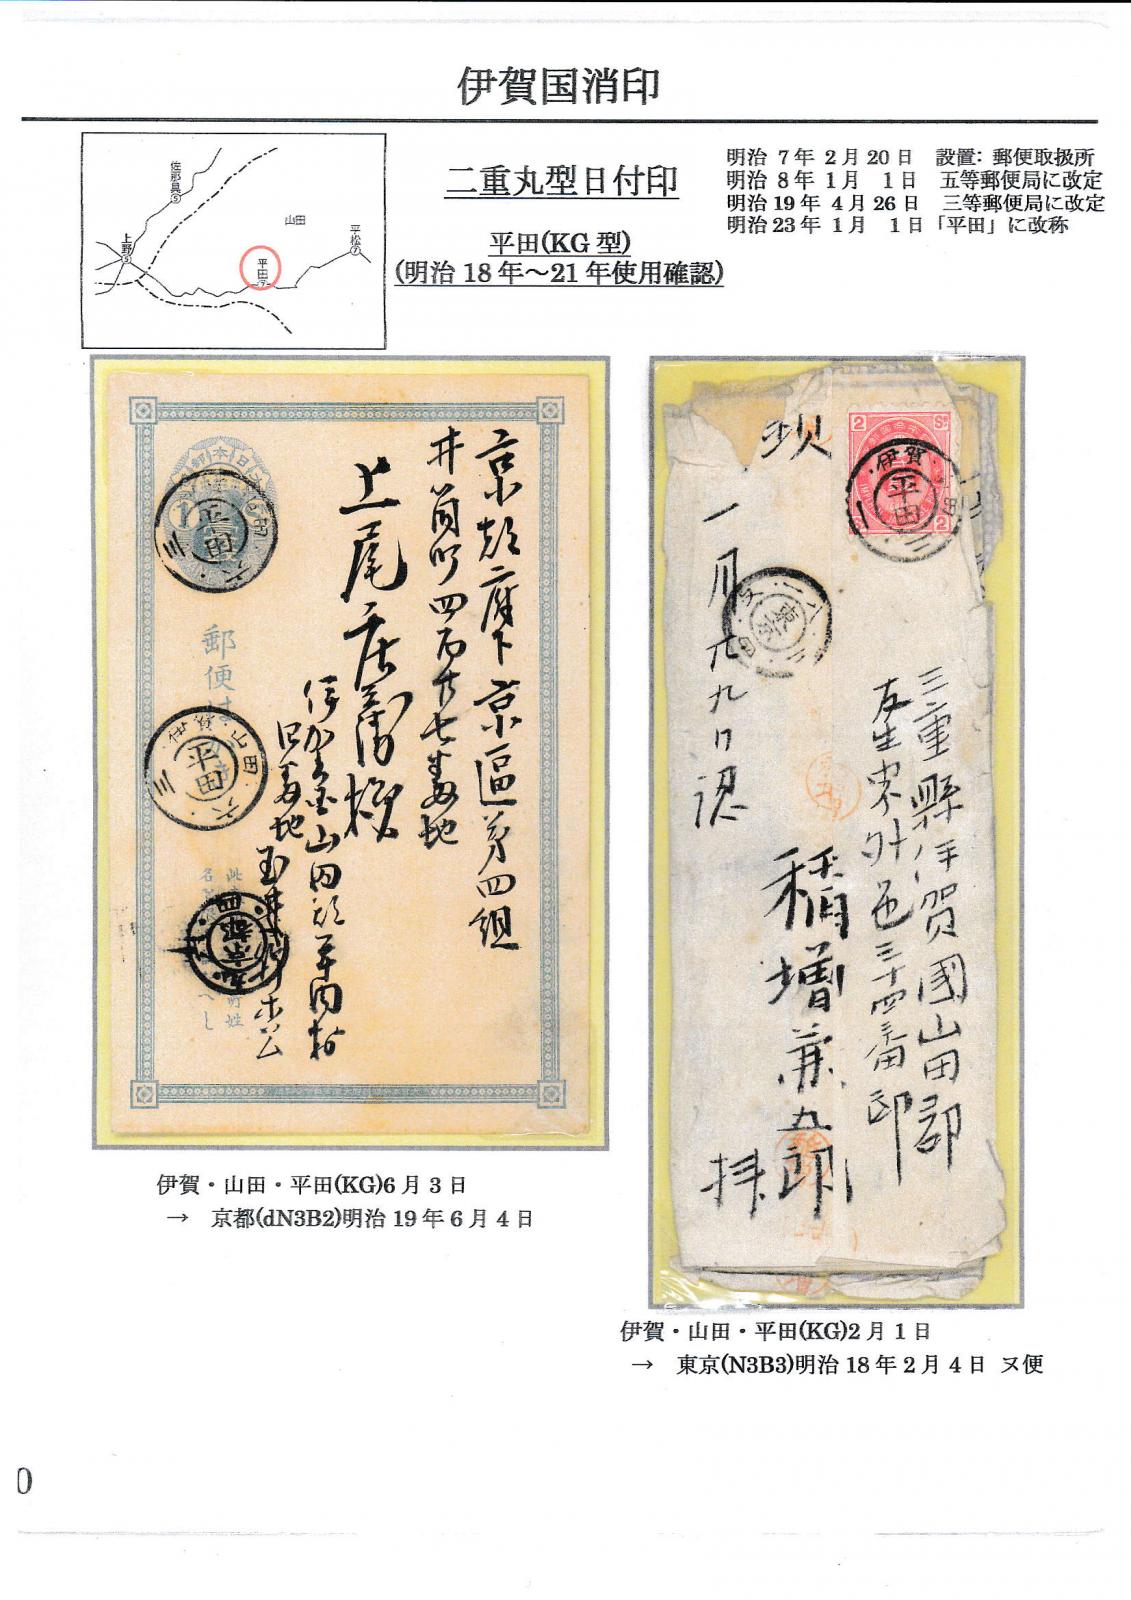 伊賀国消印
佐那具
5
上野
5
山田
平田
平松
二重丸型日付印
平田(KG 型)
(明治 18 年～21 年使用確認)
明治 7年 2月 20日 設置: 郵便取扱所
明治 8年 1月 1日 五等郵便局に改定
明治 19年 4月 26日 三等郵便局に改定
明治 23年 1月 1日「平田」に改称
郵便は
伊賀・山田
平田
六・三
京都
京都府下京區第四組
井筒町四百廿七番地
上尾庄兵衛様
2 Sn
伊賀
平田
東京
一月廿九日認
三重縣伊賀國山田郡
稲増兼五郎
拝
伊賀・山田・平田(KG)6月3日
→ 京都(dN3B2)明治 19 年 6 月 4 日
伊賀・山田・平田(KG)2月1日
→ 東京(N3B3)明治 18 年 2 月 4 日 ヌ便
0